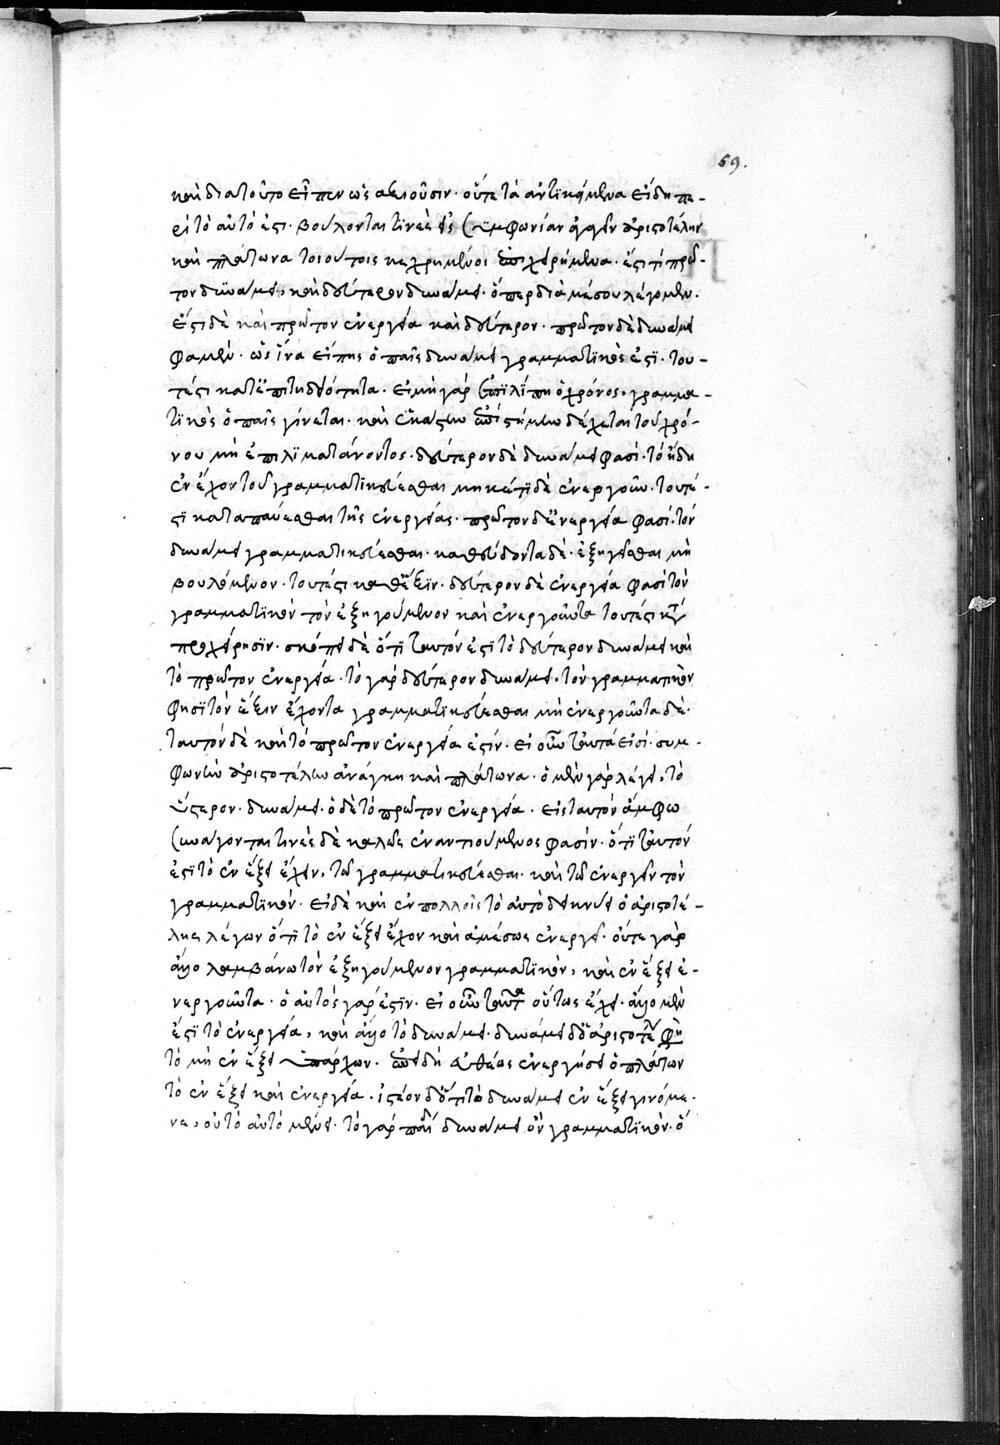 59.
καὶ διατοῦτο εἶπεν ὡς ἀξιοῦσιν· οὔτε τὰ ἀντικείμενα εἴδη πε-
ρὶ τὸ αὐτό ἐστι· βούλονται τινὲς εἰς συμφωνίαν ἄγειν ἀριστοτέλην
καὶ πλάτωνα τοιούτοις κεχρημένοι ἐπιχειρήμενα· ἐστί τι πρῶ-
τον δυνάμει, καὶ δεύτερον δυνάμει· ὅπερ διὰ μέσου λέγομεν·
ἔστι δὲ καὶ πρῶτον ἐνεργεία καὶ δεύτερον· πρῶτον δὲ δυνάμει
φαμὲν· ὡς ἵνα εἴπης ὁ παῖς δυνάμει γραμματικός ἐστι· του-
τέστι κατ' ἐπιτηδειότητα· εἰ μὴ γὰρ ἐπιλίπη ὁ χρόνος, γραμμα-
τικὸς ὁ παῖς γίνεται· καὶ ἑκάστην ἐπιστήμην δέχεται τοῦ χρό-
νου μὴ ἐπιλιματάνοντος· δεύτερον δὲ δυνάμει φασὶ· τὸ ἤδη
ἐν ἔχον τοῦ γραμματικεύεσθαι μηκέτι δὲ ἐνεργοῦν· τουτέ-
στι καταπαύεσθαι τῆς ἐνεργείας· πρῶτον δ' ἐνεργεία φασὶ· τὸν
δυνάμει γραμματικεύεσθαι· καθεύδοντα δὲ· ἐξηγεῖσθαι μὴ
βουλόμενον· τουτέστι καθ' ἕξιν· δεύτερον δὲ ἐνεργεία φασὶ τὸν
γραμματικὸν τὸν ἐξηγούμενον καὶ ἐνεργοῦντα τουτέστι κατὰ
προχείρησιν· σκόπει δὲ ὅτι ταυτόν ἐστι τὸ δεύτερον δυνάμει καὶ
τὸ πρῶτον ἐνεργεία· τὸ γὰρ δεύτερον δυνάμει, τὸν γραμματικὸν
φησὶ τὸν ἕξιν ἔχοντα γραμματικεύεσθαι μὴ ἐνεργοῦντα δὲ·
ταυτὸν δὲ καὶ τὸ πρῶτον ἐνεργεία ἐστίν· εἰ οὖν ταὐτά εἰσί· συμ-
φωνεῖν ἀριστοτέλην ἀνάγκη καὶ πλάτωνα· ὁ μὲν γὰρ λέγει, τὸ
ὕστερον· δυνάμει· ὁ δὲ τὸ πρῶτον ἐνεργεία· εἰς ταυτὸν ἄμφω
συνάγονται τινὲς δὲ καλῶς ἐναντιούμενος φασὶν· ὅτι ταὐτόν
ἐστι τὸ ἐν ἕξει ἔχειν, τῶ γραμματικεύεσθαι· καὶ τῶ ἐνεργεῖν τὸν
γραμματικὸν· εἰ δὲ καὶ ἐν πολλοῖς τὸ αὐτὸ δείκνυσι ὁ ἀριστοτέ-
λης λέγων ὅτι τὸ ἐν ἕξει ἔχον καὶ ἀμέσως ἐνεργεῖ· οὔτε γὰρ
ἄλλο λαμβάνω τὸν ἐξηγούμενον γραμματικὸν, καὶ ἐν ἕξει ἐ-
νεργοῦντα· ὁ αὐτὸς γάρ ἐστιν· εἰ οὖν ταῦτα οὕτως ἔχει· ἄλλο μὲν
ἐστι τὸ ἐνεργεία, καὶ ἄλλο τὸ δυνάμει· δυνάμει δ' ὁ ἀριστοτέλης φησὶ
τὸ μὴ ἐν ἕξει ὑπάρχων· ἐπεὶ δὴ εὐθέως ἐνεργήσει ὁ πλάτων
τὸ ἐν ἕξει καὶ ἐνεργεία· ἰστέον δ' ὅτι τὸ δυνάμει ἐν ἕξει γινόμε-
νον, οὐ τὸ αὐτὸ μένει· τὸ γὰρ παιδὶ δυνάμει ὂν γραμματικὸν· ὁ